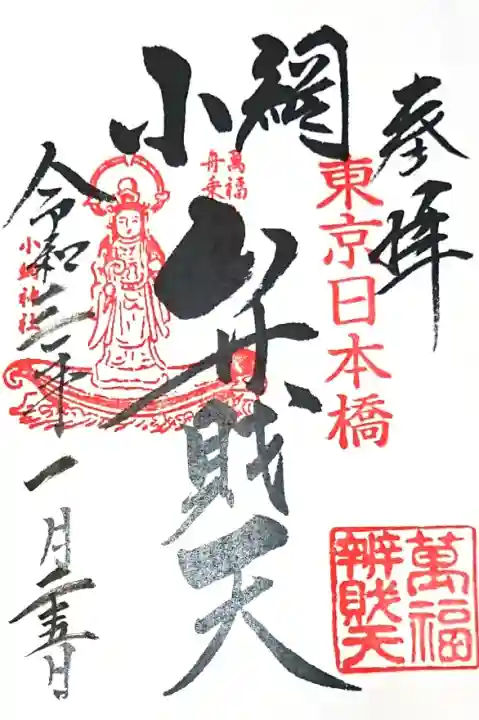 奉拝
東京日本橋
萬福
辨財天
小網
萬福
舟乗
弁財天
令和三年一月二十五日
小網神社